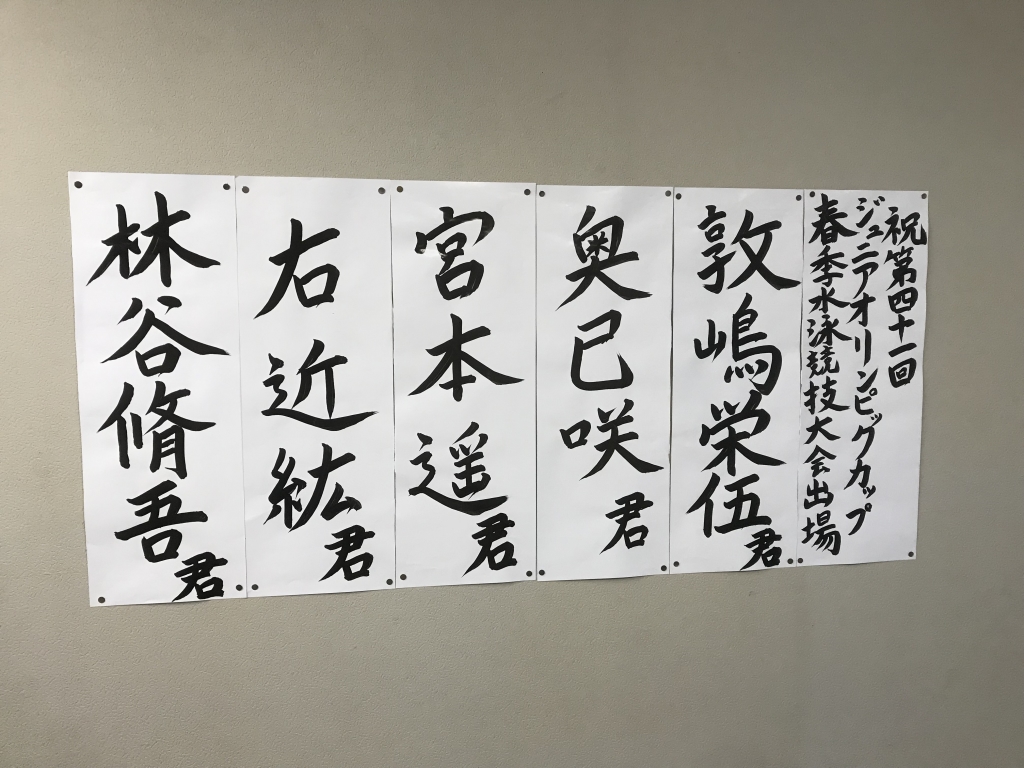 祝第四十一回
ジュニアオリンピックカップ
春季水泳競技大会出場
敦嶋栄伍君
奥已咲君
宮本遥君
右近紘君
林谷脩吾君